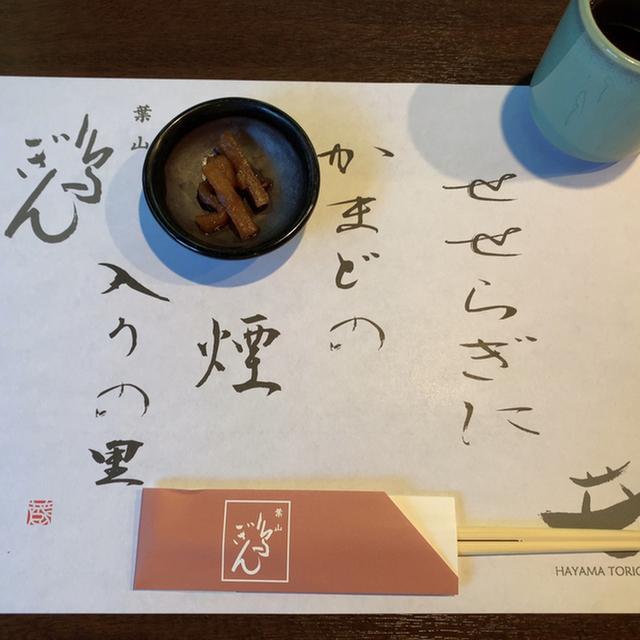 せせらぎに
かまどの
煙
入りの里
葉山
鶏ぎん
葉山
鶏ぎん
HAYAMA TORIG